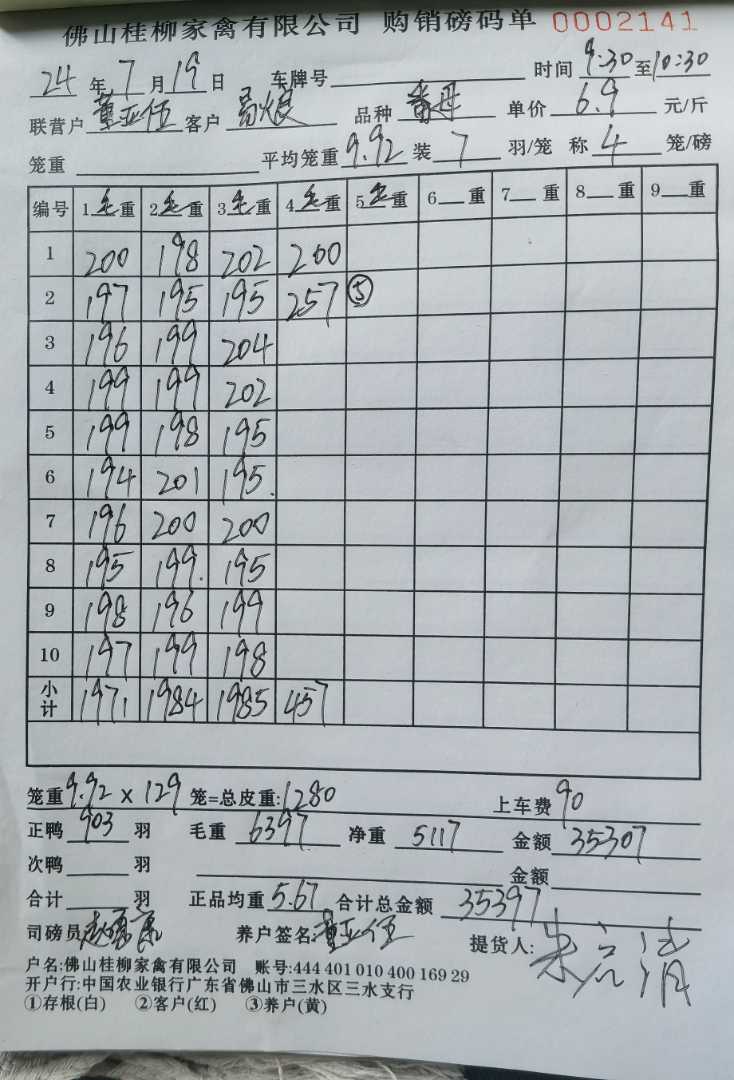 佛山桂柳家禽有限公司 购销磅码单 0002141
24 年 7 月 19 日 车牌号 时间 9:30 至 10:30
联营户 董亚伍 客户 品种 番母 单价 6.9 元/斤
笼重 平均笼重 9.92 装 7 羽/笼 称 4 笼/磅
编号 1 毛 重 2 毛 重 3 毛 重 4 毛 重 5 毛 重 6 重 7 重 8 重 9 重
1 200 198 202 200
2 197 195 195 257 ⑤
3 196 199 204
4 199 199 202
5 199 198 195
6 194 201 195.
7 196 200 200
8 195 199. 195
9 198 196 199
10 197 199 198
小计 1971 1984 1985 457
笼重 9.92 X 129 笼=总皮重: 1280 上车费 90
正鸭 903 羽 毛重 6397 净重 5117 金额 35307
次鸭 羽 金额
合计 羽 正品均重 5.67 合计总金额 35397
司磅员 养户签名: 董亚伍 提货人:
户名:佛山桂柳家禽有限公司 账号:444 401 010 400 169 29
开户行:中国农业银行广东省佛山市三水区三水支行
①存根(白) ②客户(红) ③养户(黄)